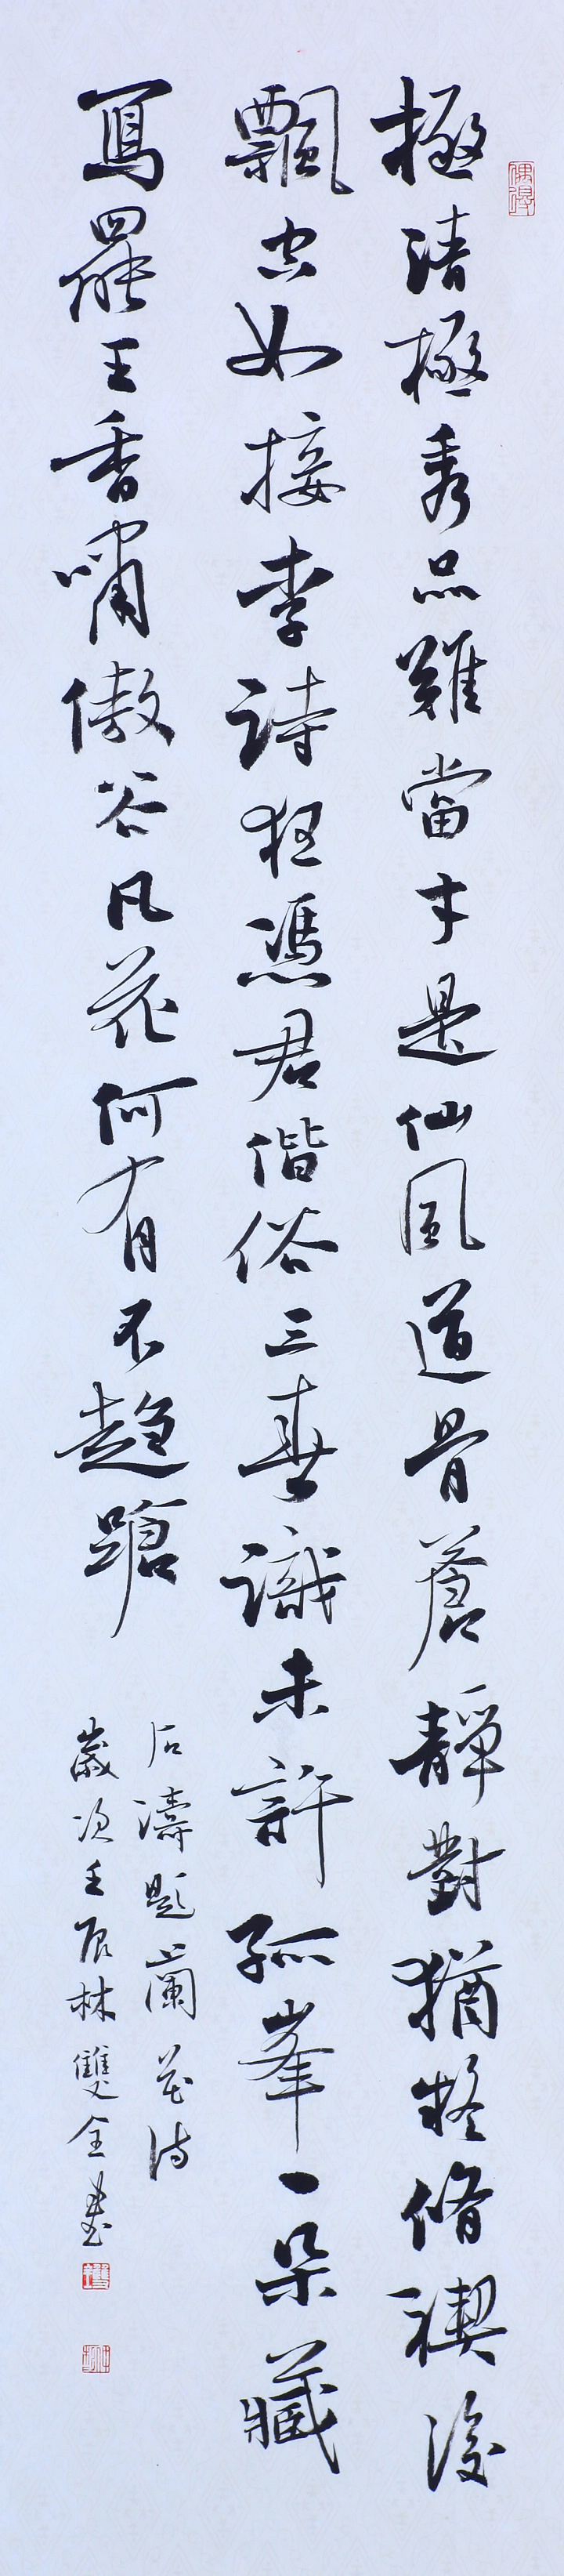 偶得
極清極秀品難當才是仙風道骨蒼靜對猶疑脩禊後
飄空如接李詩狂憑君偕俗三春識未許孤峯一朵藏
寫罷王香嘯傲谷凡花何有不趨蹌
石濤題蘭花詩
歲次壬辰林雙全書